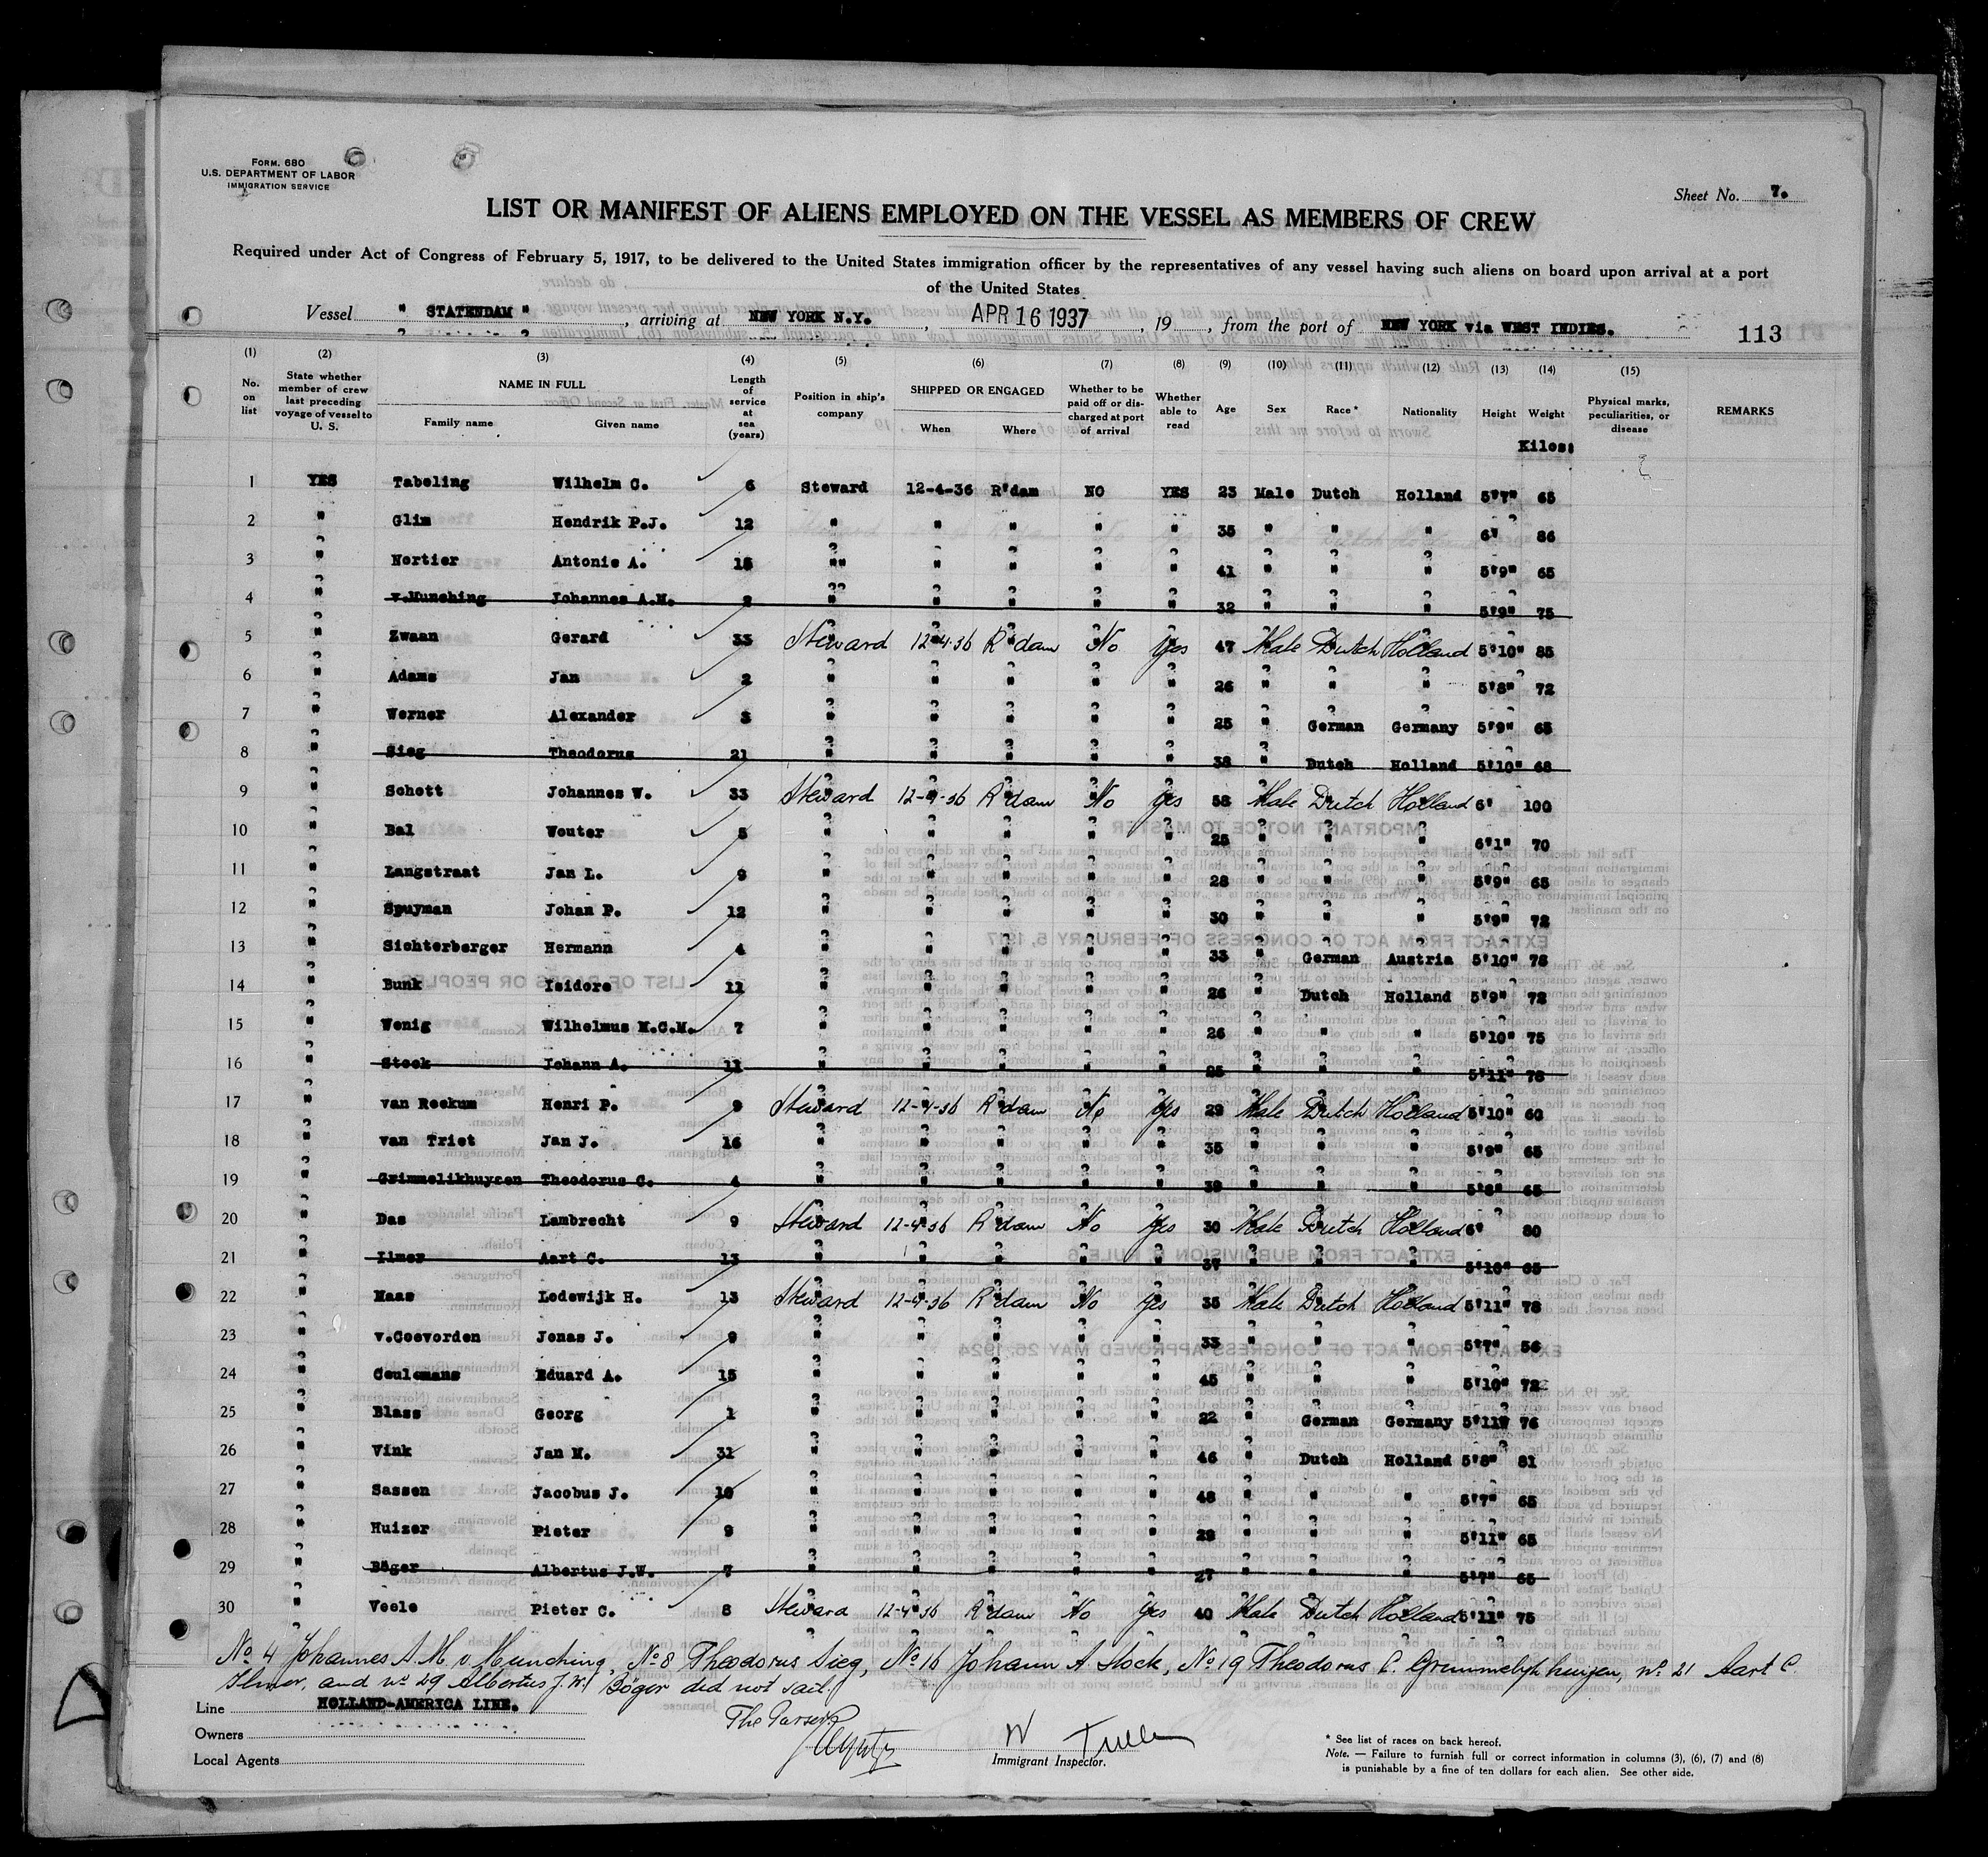 Form. 680
U.S. DEPARTMENT OF LABOR
IMMIGRATION SERVICE
Sheet No. 7.
LIST OR MANIFEST OF ALIENS EMPLOYED ON THE VESSEL AS MEMBERS OF CREW
Required under Act of Congress of February 5, 1917, to be delivered to the United States immigration officer by the representatives of any vessel having such aliens on board upon arrival at a port
of the United States
Vessel " STATENDAM ", arriving at NEW YORK N.Y., APR 16 1937, 19, from the port of NEW YORK via WEST INDIES. 113
(1) (2) (3) (4) (5) (6) (7) (8) (9) (10) (11) (12) (13) (14) (15)
No. on list State whether member of crew last preceding voyage of vessel to U. S. NAME IN FULL Family name Given name Length of service at sea (years) Position in ship's company SHIPPED OR ENGAGED When Where Whether to be paid off or discharged at port of arrival Whether able to read Age Sex Race * Nationality Height Weight Physical marks, peculiarities, or disease REMARKS
Kilos:
1 YES Tabeling Wilhelm C. 6 Steward 12-4-36 R'dam NO YES 23 Male Dutch Holland 5'7" 65
2 " Glim Hendrik P.J. 12 " " " " " 35 " " " 6' 86
3 " Nortier Antonie A. 15 " " " " " 41 " " " 5'9" 65
4 " v.Munching Johannes A.M. 9 " " " " " 32 " " " 5'9" 75
5 " Zwaan Gerard 33 Steward 12-4-36 R'dam No Yes 47 Male Dutch Holland 5'10" 85
6 " Adams Jan 2 " " " " " 26 " " " 5'8" 72
7 " Werner Alexander 3 " " " " " 25 " German Germany 5'9" 65
8 " Sieg Theodorus 21 " " " " " 38 " Dutch Holland 5'10" 68
9 " Schott Johannes W. 33 Steward 12-4-36 R'dam No Yes 58 Male Dutch Holland 6' 100
10 " Bal Wouter 5 " " " " " 25 " " " 6'1" 70
11 " Langstraat Jan L. 9 " " " " " 28 " " " 5'9" 65
12 " Spuyman Johan P. 12 " " " " " 30 " " " 5'9" 72
13 " Sichterberger Hermann 4 " " " " " 33 " German Austria 5'10" 78
14 " Bunk Isidore 11 " " " " " 26 " Dutch Holland 5'9" 72
15 " Wenig Wilhelmus M.C.M. 7 " " " " " 26 " " " 5'10" 75
16 " Stock Johann A. 11 " " " " " 25 " " " 5'11" 78
17 " van Reekum Henri P. 9 Steward 12-4-36 R'dam No Yes 29 Male Dutch Holland 5'10" 60
18 " van Triet Jan J. 16 " " " " " 35 " " " 5'9" 65
19 " Grimmelikhuysen Theodorus C. 4 " " " " " 39 " " " 5'8" 65
20 " Das Lambrecht 9 Steward 12-4-36 R'dam No Yes 30 Male Dutch Holland 6' 80
21 " Ilmer Aart C. 13 " " " " " 37 " " " 5'10" 65
22 " Maas Lodewijk H. 13 Steward 12-4-36 R'dam No Yes 35 Male Dutch Holland 5'11" 78
23 " v.Coevorden Jonas J. 9 " " " " " 33 " " " 5'7" 56
24 " Ceulemans Eduard A. 15 " " " " " 45 " " " 5'10" 72
25 " Blass Georg 1 " " " " " 22 " German Germany 5'11" 76
26 " Vink Jan M. 31 " " " " " 46 " Dutch Holland 5'8" 81
27 " Sassen Jacobus J. 10 " " " " " 48 " " " 5'7" 65
28 " Huizer Pieter 9 " " " " " 29 " " " 5'11" 65
29 " Böger Albertus J.W. 7 " " " " " 27 " " " 5'7" 65
30 " Veele Pieter C. 8 Steward 12-4-36 R'dam No Yes 40 Male Dutch Holland 5'11" 75
No 4 Johannes A.M. v. Munching, No 8 Theodorus Sieg, No 16 Johann A. Stock, No 19 Theodorus C. Grimmelijkhuizen, no 21 Aart C.
Ilmer, and no 29 Albertus J.W. Böger did not sail.
Line HOLLAND-AMERICA LINE.
Owners
Local Agents
The Purser
Immigrant Inspector.
* See list of races on back hereof.
Note. — Failure to furnish full or correct information in columns (3), (6), (7) and (8)
is punishable by a fine of ten dollars for each alien. See other side.